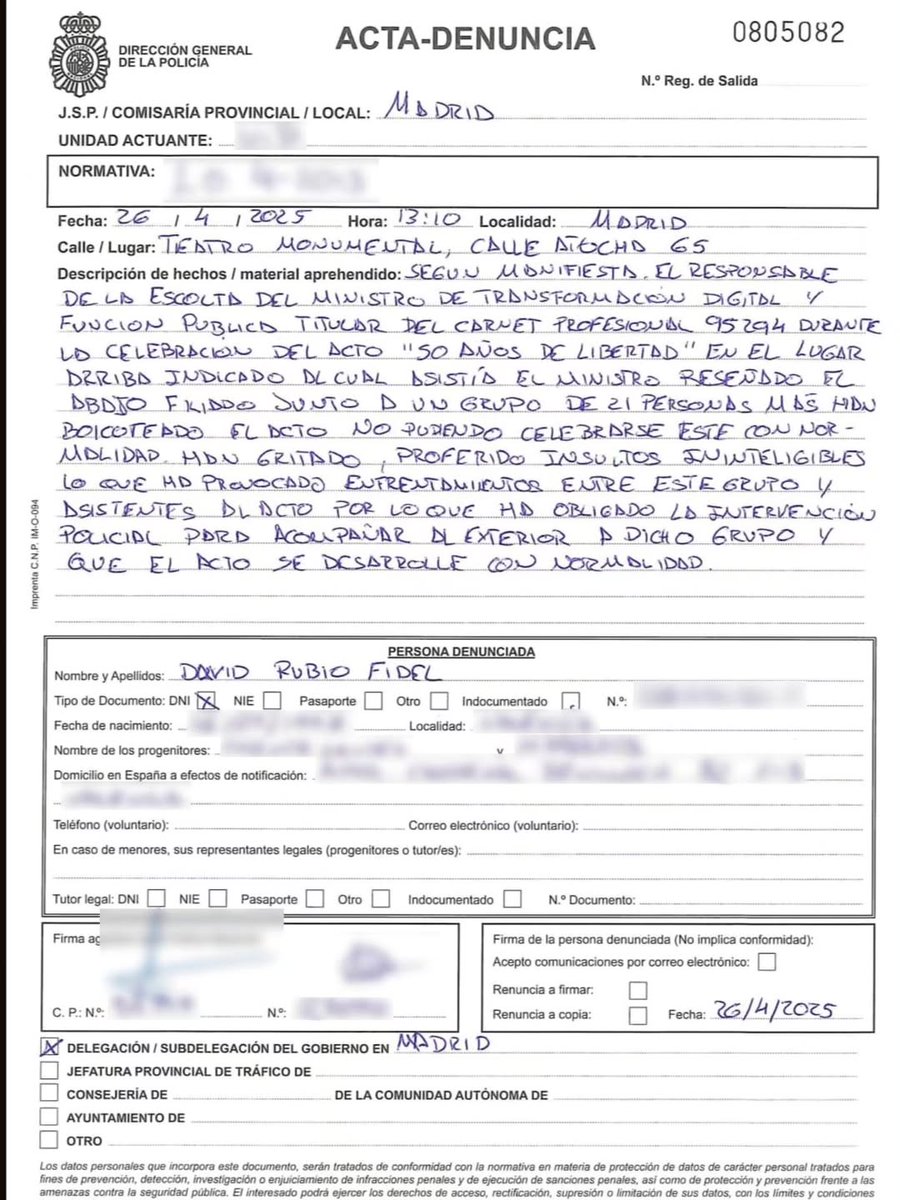 DIRECCIÓN GENERAL
DE LA POLICÍA
ACTA-DENUNCIA
0805082
N.º Reg. de Salida
J.S.P. / COMISARÍA PROVINCIAL / LOCAL: MADRID
UNIDAD ACTUANTE:
NORMATIVA:
Fecha: 26 / 4 / 2025 Hora: 13:10 Localidad: MADRID
Calle / Lugar: TEATRO MONUMENTAL, CALLE ATOCHA 65
Descripción de hechos / material aprehendido: SEGUN MANIFIESTA EL RESPONSABLE
DE LA ESCOLTA DEL MINISTRO DE TRANSFORMACIÓN DIGITAL Y
FUNCION PUBLICA TITULAR DEL CARNET PROFESIONAL 95294 DURANTE
LA CELEBRACIÓN DEL ACTO "50 AÑOS DE LIBERTAD" EN EL LUGAR
ARRIBA INDICADO AL CUAL ASISTÍA EL MINISTRO RESEÑADO EL
ABAJO FILIADO JUNTO A UN GRUPO DE 21 PERSONAS MAS HAN
BOICOTEADO EL ACTO NO PUDENDO CELEBRARSE ESTE CON NOR-
MALIDAD. HAN GRITADO, PROFERIDO INSULTOS ININTELIGIBLES
LO QUE HA PROVOCADO ENFRENTAMIENTOS ENTRE ESTE GRUPO Y
ASISTENTES AL ACTO POR LO QUE HA OBLIGADO LA INTERVENCIÓN
POLICIAL PARA ACOMPAÑAR AL EXTERIOR A DICHO GRUPO Y
QUE EL ACTO SE DESARROLLE CON NORMALIDAD.
Imprenta C.N.P. IM-O-094
PERSONA DENUNCIADA
Nombre y Apellidos: DAVID RUBIO FIDEL
Tipo de Documento: DNI X NIE Pasaporte Otro Indocumentado N.º:
Fecha de nacimiento: Localidad:
Nombre de los progenitores: y
Domicilio en España a efectos de notificación:
Teléfono (voluntario): Correo electrónico (voluntario):
En caso de menores, sus representantes legales (progenitores o tutor/es):
Tutor legal: DNI NIE Pasaporte Otro Indocumentado N.º Documento:
Firma
C. P.: N.º: N.º:
Firma de la persona denunciada (No implica conformidad):
Acepto comunicaciones por correo electrónico:
Renuncia a firmar:
Renuncia a copia: Fecha: 26/4/2025
X DELEGACIÓN / SUBDELEGACIÓN DEL GOBIERNO EN MADRID
JEFATURA PROVINCIAL DE TRÁFICO DE
CONSEJERÍA DE DE LA COMUNIDAD AUTÓNOMA DE
AYUNTAMIENTO DE
OTRO
Los datos personales que incorpora este documento, serán tratados de conformidad con la normativa en materia de protección de datos de carácter personal tratados para
fines de prevención, detección, investigación o enjuiciamiento de infracciones penales y de ejecución de sanciones penales, así como de protección y prevención frente a las
amenazas contra la seguridad pública. El interesado podrá ejercer los derechos de acceso, rectificación, supresión o limitación de sus datos, con los límites y condiciones